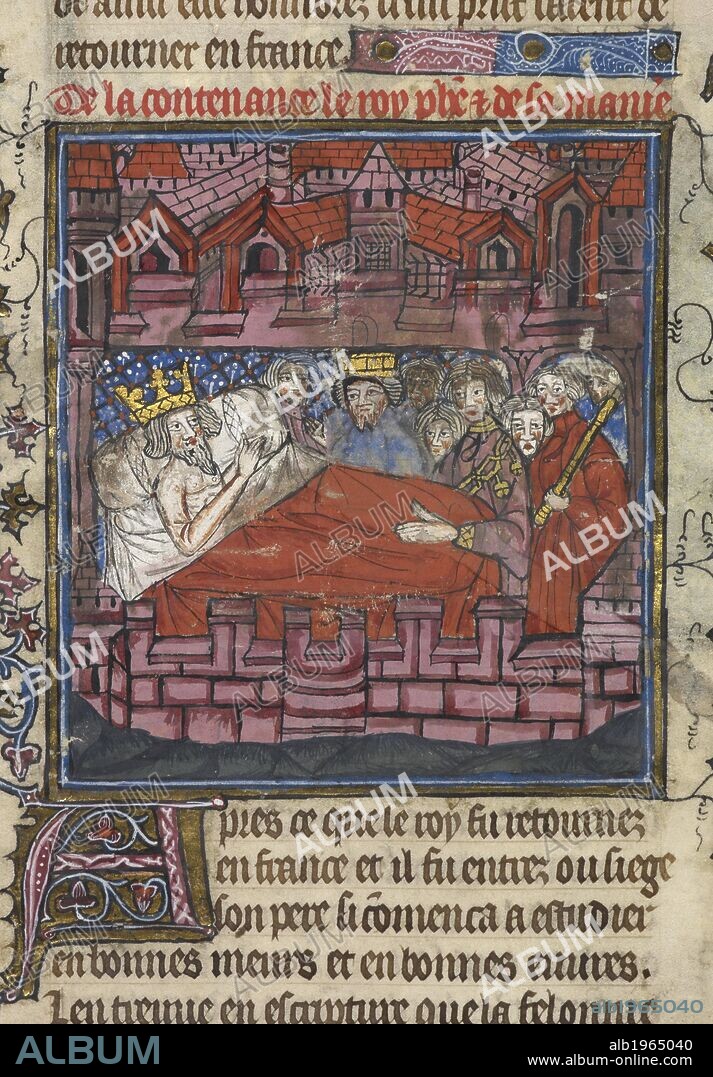 retourner en france
De la contenance le roy phẽ ⁊ de sa maniẽ
Apres ce que le roy fu retournez
en france et il fu entrez ou siege
son pere si cõmenca a estudier
en bonnes meurs et en bonnes
Len treuue en escripture que la felonnie
ALBUM
alb1965040
ALBUM
alb1965040
www.album-online.com